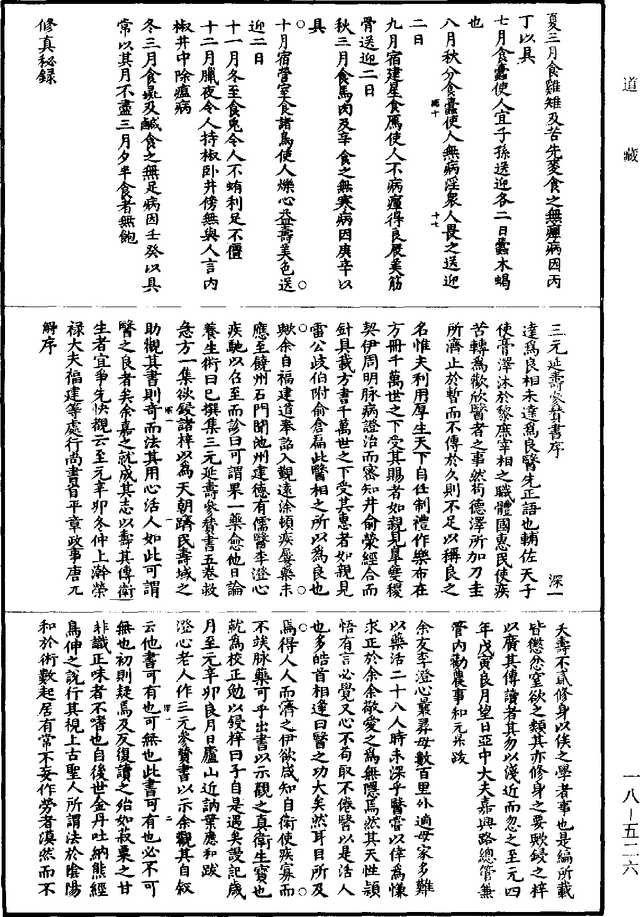 道藏
夏三月食雞雉及苦先麥食之無癉病因丙
丁以具
七月食蠹使人宜子孫送迎各二日蠹木蝎
也
八月秋分食蠹使人無病淫衆人畏之送迎
二日
九月宿建星食鴈使人不病癉得良展美筋
骨送迎二日
秋三月食馬肉及辛食之無寒病因庚辛以
具
十月宿營室食諸鳥使人爍心益壽美色送
迎二日
十一月冬至食兎令人不蛕利足不僵
十二月臘夜令人持椒卧井傍無與人言内
椒井中除瘟病
冬三月食彘及鹹食之無足病因壬癸以具
常以其月不盡三月夕半食者無飽
修真秘録
三元延壽參贊書序
深一
達爲良相未達爲良醫先正語也輔佐天子
使膏澤沐於黎庶宰相之職體國惠民使疾
苦轉爲歡欣醫者之事然苟德澤所加刀圭
所濟止於暫而不傳於久則不足以稱良之
名惟夫利用厚生天下自任制禮作樂布在
方冊千萬世之下受其賜者如親見臯夔稷
契伊周明脉病證治而審知井俞榮經合而
針具載方書千萬世之下受其惠者如親見
雷公歧伯附俞倉扁此醫相之所以爲良也
歟余自福建道奉詔入觀遠涂頓疾屢藥未
應至饒州石門聞池州建德有儒醫李澄心
疾馳以召至而診曰可謂果一藥愈他日論
養生術曰已撰集三元延壽參贊書五卷救
急方一集欲鋟諸梓以爲天朝躋民壽域之
助觀其書則奇而法其用心活人如此可謂
醫之良者矣余嘉之就成其志以壽其傳衛
生者宜爭先快覩云至元辛卯冬仲上澣榮
禄大夫福建等處行尚書省平章政事唐兀
觧序
夭壽不貳修身以俟之學者事也是編所載
皆懲忿窒欲之類其亦修身之要歟鋟之梓
以廣其傳讀者其勿以淺近而忽之至元四
年戊寅良月望日亞中大夫嘉興路總管兼
管内勸農事和元杲跋
余友李澄心曩尋母數百里外適母家多難
以藥活二十八人時未深乎醫嘗以倖爲慊
求正於余余敬愛之爲無隱焉然其天性穎
悟有言必覺又心不苟取不倦醫以是活人
也多皓首相逢曰醫之功大矣然耳目所及
焉得人人而濟之伊欲咸知自衛使疾寡而
不竢脉藥可乎出書以示觀之真衛生寶也
就爲校正勉以鋟梓曰子自是遇矣謾記歲
月至元辛卯良月日廬山近訥葉應和跋
澄心老人作三元參贊書以示余觀其自叙
云他書可有也可無也此書可有也必不可
無也初則疑焉及反復讀之殆如菽粟之甘
非識正味者不嗜也自後世金丹吐納熊經
鳥伸之説行其視上古聖人所謂法於陰陽
和於術數起居有常不妄作勞者漠然而不
一八—五二六